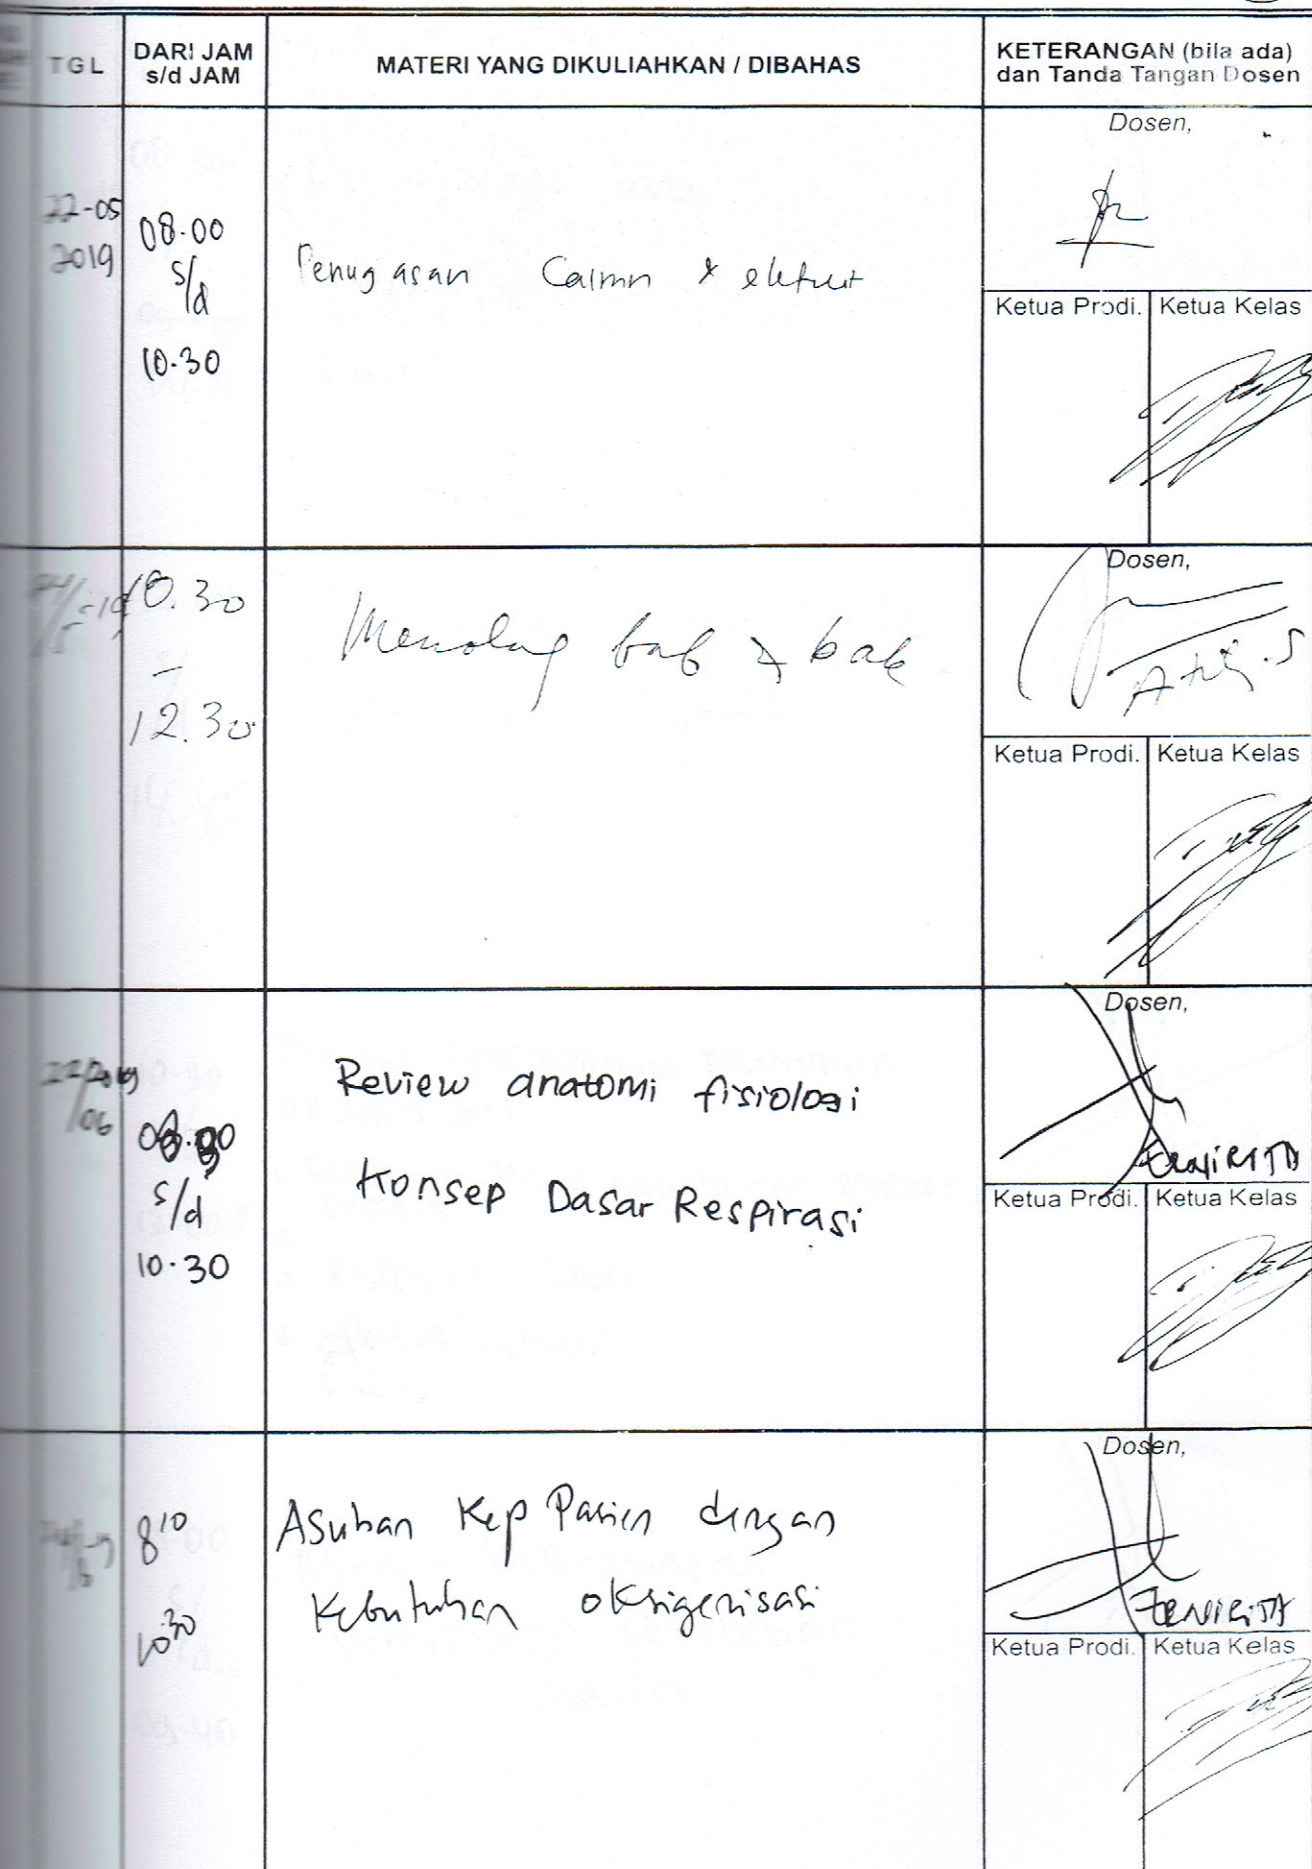 TGL
DARI JAM
s/d JAM
MATERI YANG DIKULIAHKAN / DIBAHAS
KETERANGAN (bila ada)
dan Tanda Tangan Dosen
22-05
2019
08.00
s/d
10.30
Penugasan Cairan &
Dosen,
Ketua Prodi.
Ketua Kelas
10.30
-
12.30
Menolong bab & bak
Dosen,
Ketua Prodi.
Ketua Kelas
22/2019
/06
s/d
10.30
Review anatomi fisiologi
Konsep Dasar Respirasi
Dosen,
Ketua Prodi.
Ketua Kelas
8 10
10 30
Asuhan Kep Pasien dengan
Kebutuhan oksigenisasi
Dosen,
Ketua Prodi.
Ketua Kelas